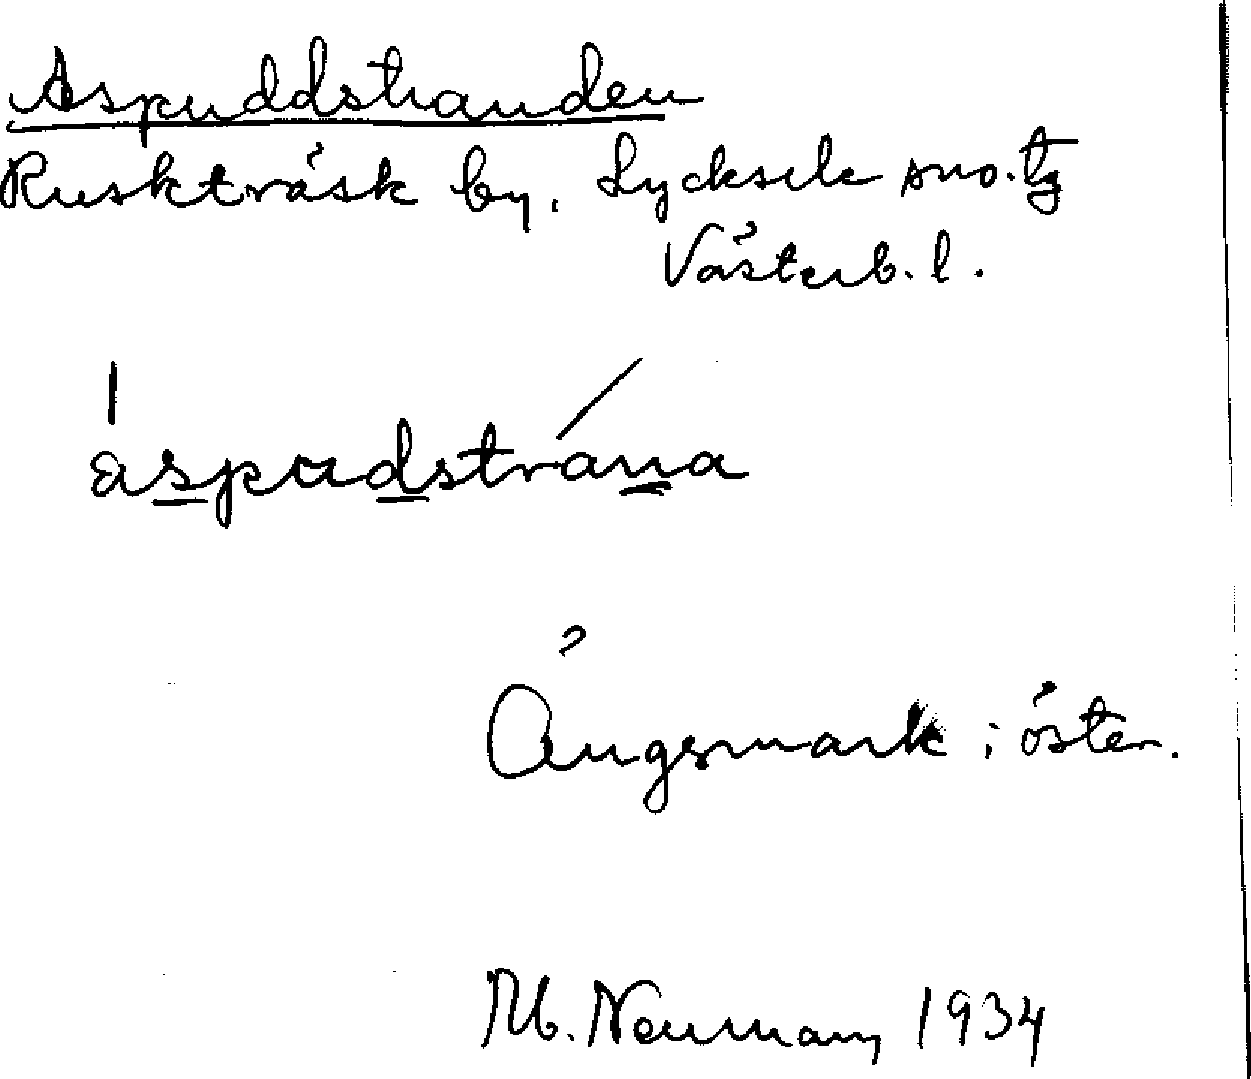 Aspuddstranden
Ruskträsk by, Lycksele sn o. tg
Västerb. l.
aspudstrana
Ängsmark i öster.
Mb. Neumann 1934